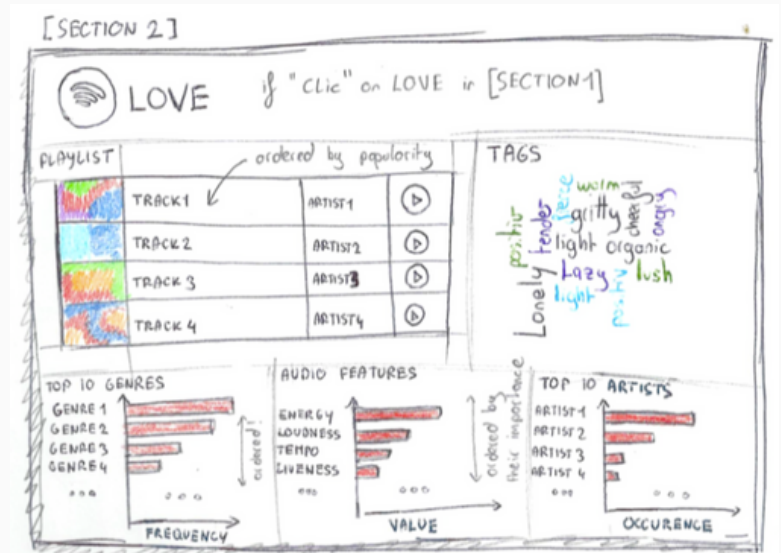 [SECTION 2]
LOVE if "CLic" on LOVE in [SECTION1]
PLAYLIST
ordered by popularity
TRACK1 ARTIST1
TRACK2 ARTIST2
TRACK 3 ARTIST3
TRACK 4 ARTIST4
TAGS
warm
fierce
cheerful
angry
positiv
tender
gritty
light organic
Lonely
Lazy
lush
light
positiv
TOP 10 GENRES
GENRE 1
GENRE2
GENRE3
GENRE4
ooo
ooo
ordered!
FREQUENCY
AUDIO FEATURES
ENERGY
LOUDNESS
TEMPO
LIVENESS
ooo
ooo
ordered by
their importance
VALUE
TOP 10 ARTISTS
ARTIST1
ARTIST 2
ARTIST 3
ARTIST 4
ooo
ooo
OCCURENCE